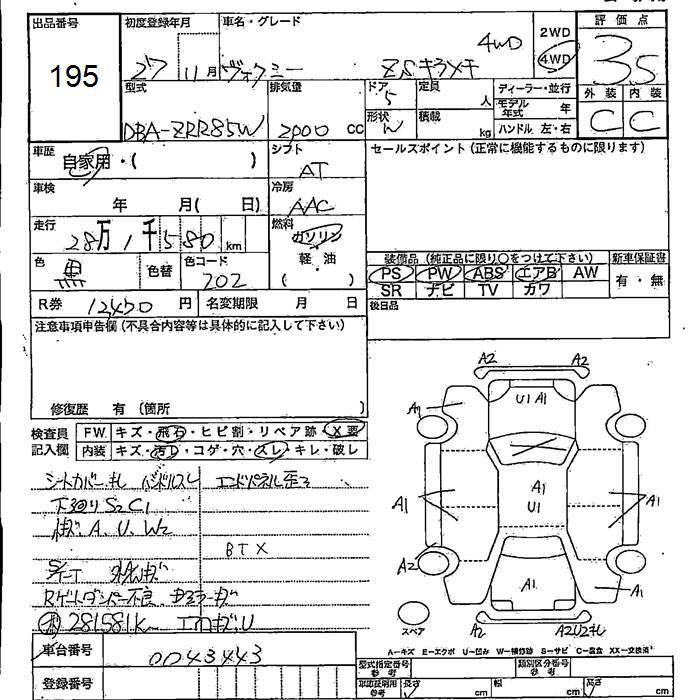 出品番号
195
初度登録年月
27 11月
車名・グレード
ヴォクシー ZSキラメキ 4WD
2WD
4WD
評価点
3.5
外装 内装
C C
型式
DBA-ZRR85W
排気量
2000 cc
ドア
5
形状
W
定員
人
積載
kg
ディーラー・並行
モデル年式 年
ハンドル 左・右
車歴
自家用・( )
シフト
AT
セールスポイント(正常に機能するものに限ります)
車検
年 月( 日)
冷房
AAC
走行
28万1千580 km
燃料
ガソリン
軽・油
( )
色
黒
色替
色コード
202
装備品(純正品に限り○をつけて下さい)
新車保証書
PS PW ABS エアB AW
有・無
SR ナビ TV カワ
R券 12450円
名変期限 月 日
後日品
注意事項申告欄(不具合内容等は具体的に記入して下さい)
修復歴 有(箇所
検査員記入欄
FW. キズ・飛石・ヒビ割・リペア跡・X要
内装 キズ・汚れ・コゲ・穴・スレ・キレ・破レ
シートカバーキレ ハンドルスレ エンドパネル歪
下廻りS2C1
A、U、W2
BTX
Rゲートダンパー不良
281581k
エアロキズ、U
A2 A2
U1 A1
A1
A1
A1
U1
A1
A2
A1
A1
A2
A2U2キレ
スペア
A-キズ E-エクボ U-凹み W-補修跡 S-サビ C-腐食 XX-交換済
車台番号
0043443
登録番号
型式指定番号
参考
類別区分番号
参考
車庫証明用
参考
長さ cm
幅 cm
高さ cm